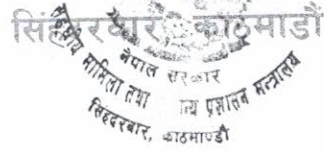 सिंहदरबार, काठमाडौं
नेपाल सरकार
मामिला तथा
न्य प्रशासन मन्त्रालय
सिंहदरबार, काठमाण्डौ